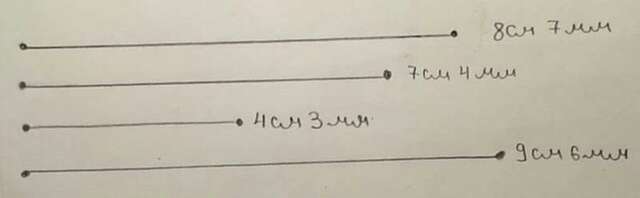 8см 7мм
7см 4мм
4см 3мм
9см 6мм